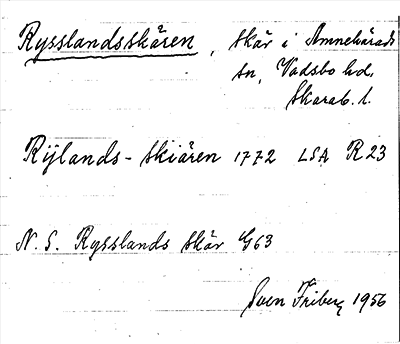 Rysslandsskären, skär i Amnehärads
sn, Vadsbo hd,
Skarab. l.
Rijlands-skiären 1772 LSA R23
N. S. Rysslands skär G63
Sven Friberg 1956